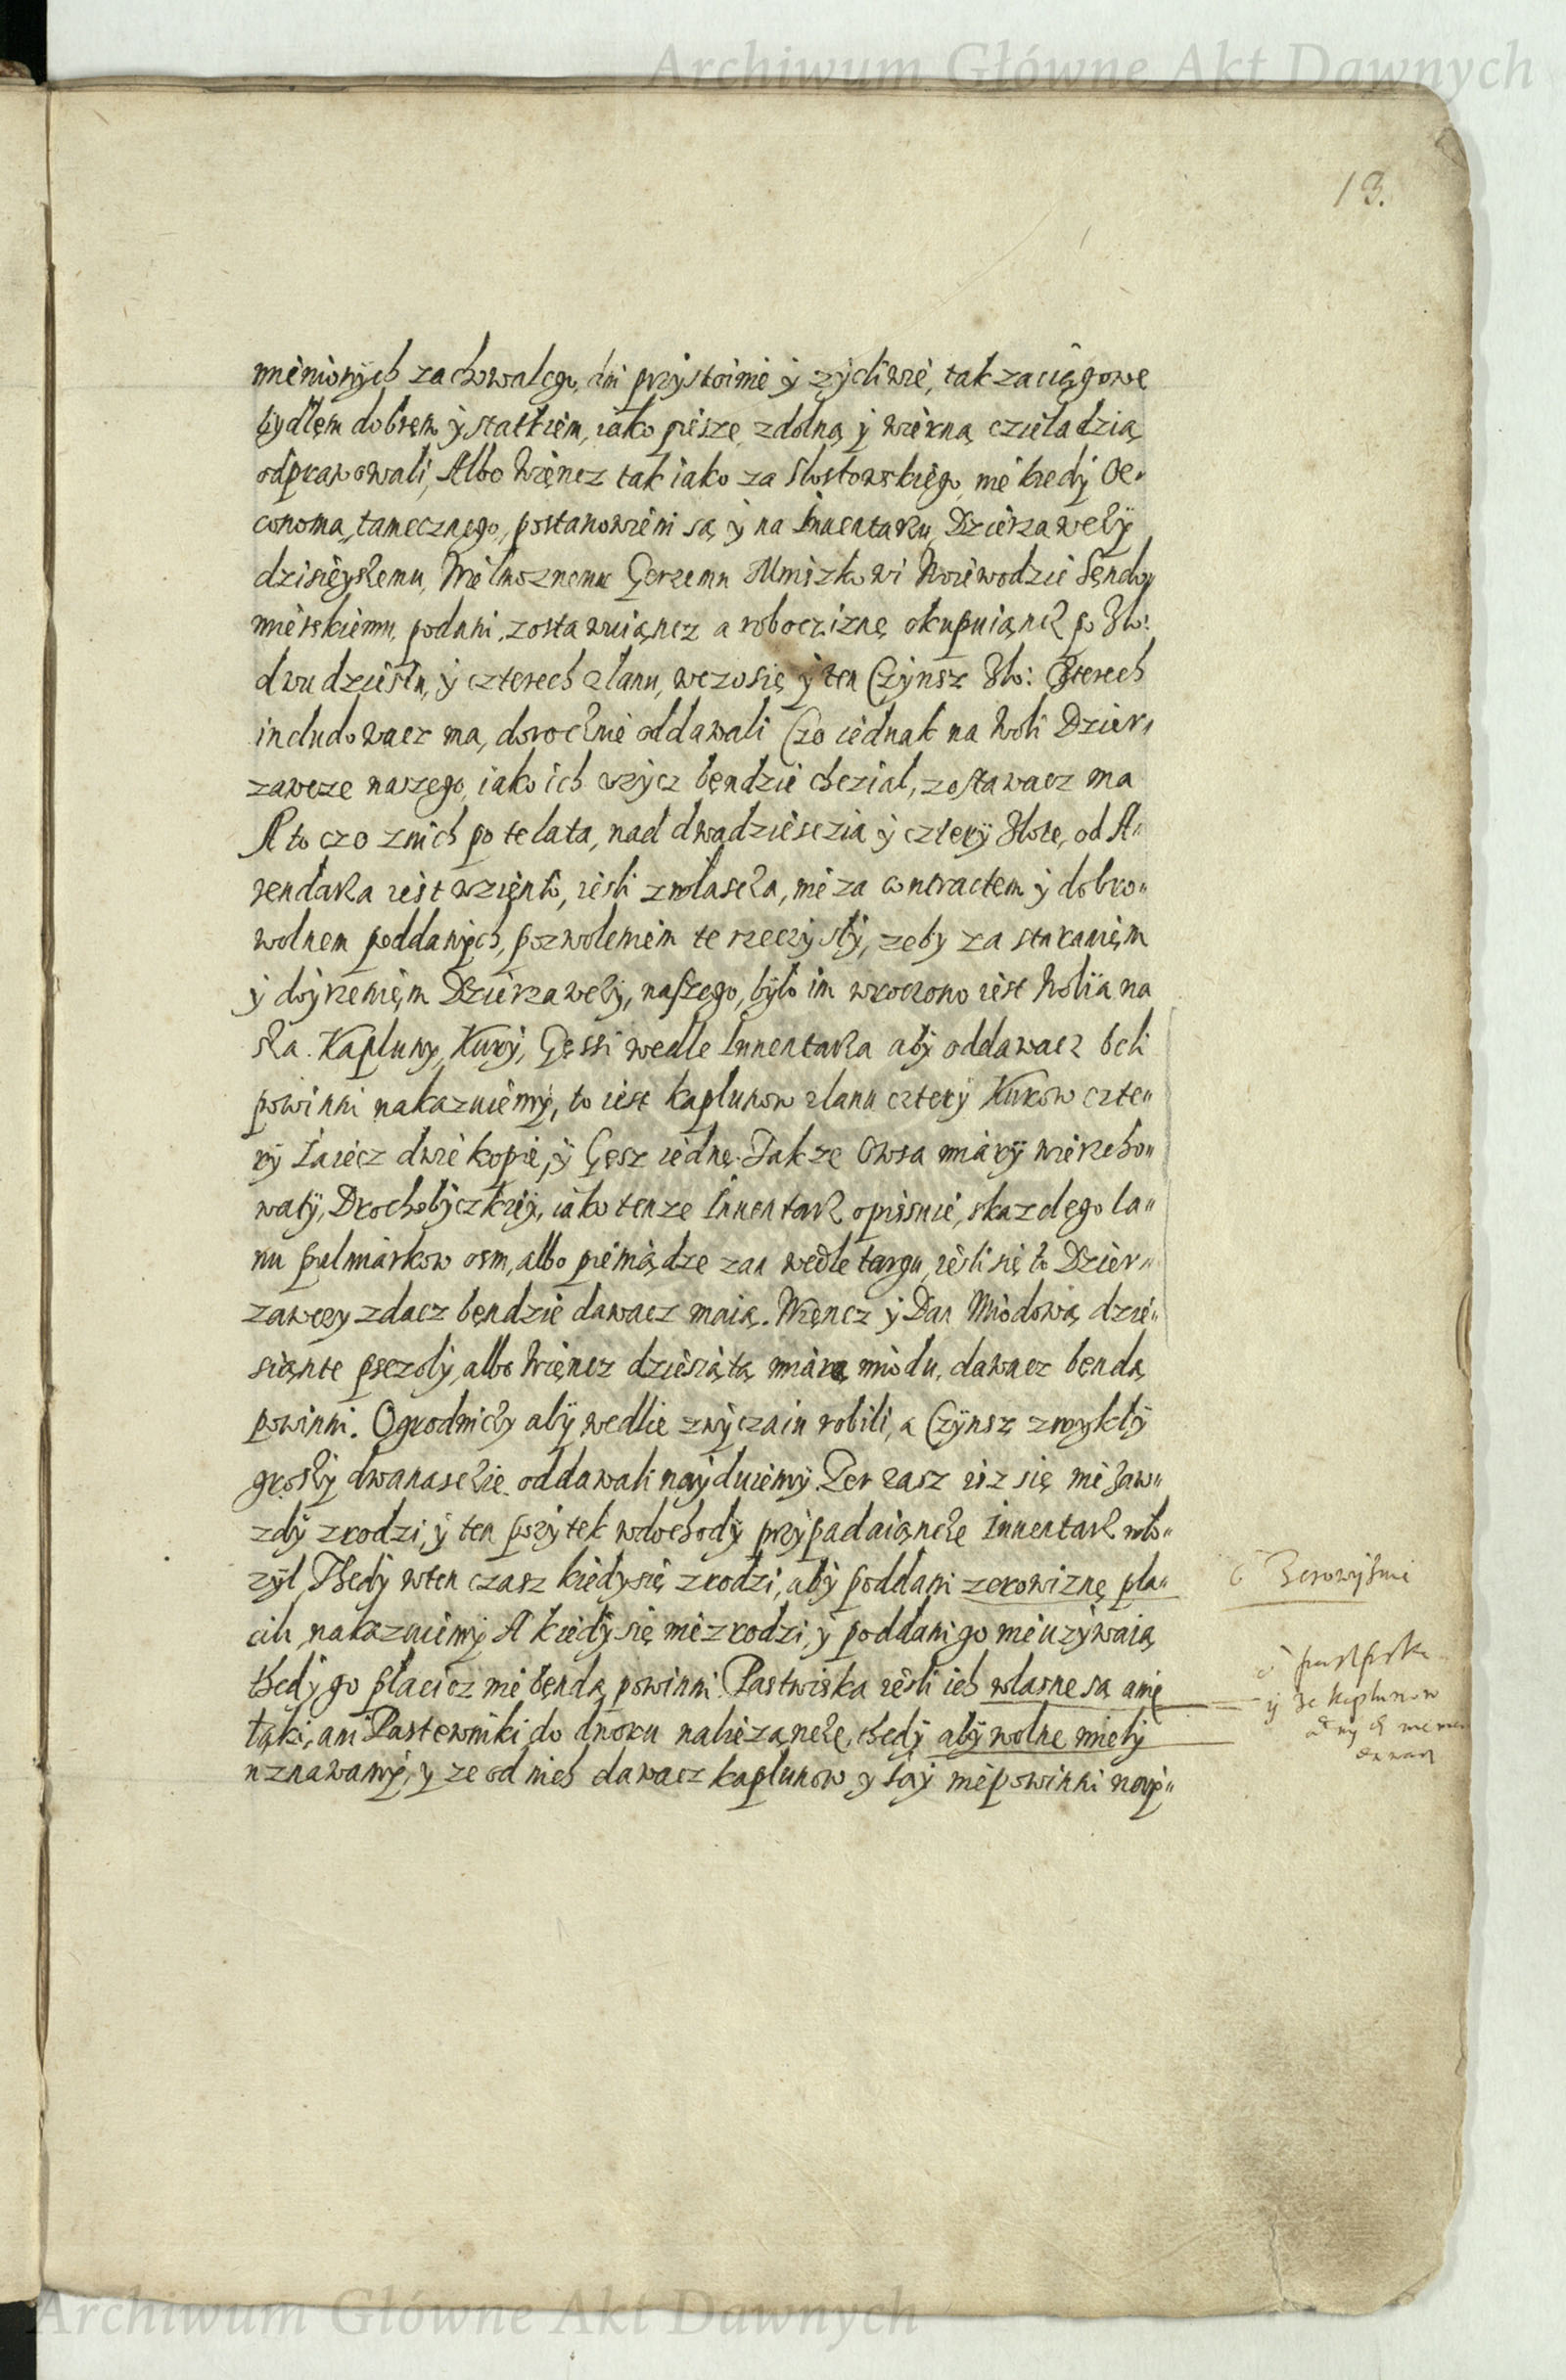 Archiwum Główne Akt Dawnych
13.
mienionych zachowalego, dni przystoinie ÿ zÿcliwie, tak zaciągowe
bydłem dobrem ÿ statkiem, iako piesze, zdolną ÿ wierną czieladzią
odprawowali, Albo Więncz tak iako za Slostowskiego, niekiedÿ Oe„
conoma, tamecznego, postanowieni są ÿ na Inuentarzu, Dzierzawcÿ
dzisieÿszemu, Wielmoznemu Gerzemu Mniszkowi Woiewodzie Sendo„
mierskiemu, podani, zostawuiąncz a roboczizne okupuiąncz po Zlo:
dwudziestu, ÿ czterech zlanu, wczosię ÿ ten Czÿnsz Zlo: Czterech
includowacz ma, dorocznie oddawali Czo iednak na Woli Dzier„
zawcze naszego, iako ich uzÿcz bęndzie chczial, zostawacz ma
A to czo znich po te lata, nad dwadziesczia ÿ czterÿ Zlote, od A„
rendarza iest wzięnto, iesli zwlascza, nie za contractem ÿ dobro„
wolnem poddanÿch, pozwoleniem te rzeczÿ slÿ, zeby za staraniem
ÿ doÿrzeniem Dzierzawczÿ, naszego, bÿlo im wroczono iest Wolia na
sza. Kaplunÿ, Kurÿ, Gęssi wedle Inuentarza abÿ oddawacz beli
powinni nakazuiemÿ, to iest kaplunow zlanu czterÿ Kurow czte„
rÿ Iaiecz dwie kopie, ÿ Gęsz iednę. Takze Owsa miarÿ wierzcho„
watÿ, Drochobÿczkieÿ, iako tenze Inuentarz opissuie, skazdego la„
nu pulmiarkow osm, albo pieniądze zan wedle targu, iesli się to Dzier„
zawczy zdacz bęndzie dawacz maią. Więncz ÿ Dan Miodową dzie„
siąnte psczolÿ, albo Więncz dziesiątą miarą miodu, dawacz bendą
powinni. Ogrodniczÿ abÿ wedlie zwÿczaiu robili, a Czÿnsz zwyklÿ
groszÿ dwanasczie oddawali naÿduiemÿ. Zer zasz isz się nie zaw„
zdÿ zrodzi, ÿ ten pozÿtek wdochodÿ przÿpadaiąncze Inuentarz wlo„
zÿl, Thedÿ wten czasz kiedÿ się zrodzi, abÿ poddani zerowiznę pla„
cili nakazuiemÿ A kiedÿ się nie zrodzi, ÿ poddani go nie uzÿwaią
thedÿ go placicz nie bendą powinni. Pastwiska iesli ich wlasne są anie
ląki, ani Pastewniki do dworu należącze, thedÿ abÿ wolne mielÿ
uznawamÿ, ÿ ze od nich dawacz kaplunow ÿ łoÿ nie powinni naÿ„
o Zerowÿzni
ÿ ze kaplunow
Archiwum Główne Akt Dawnych